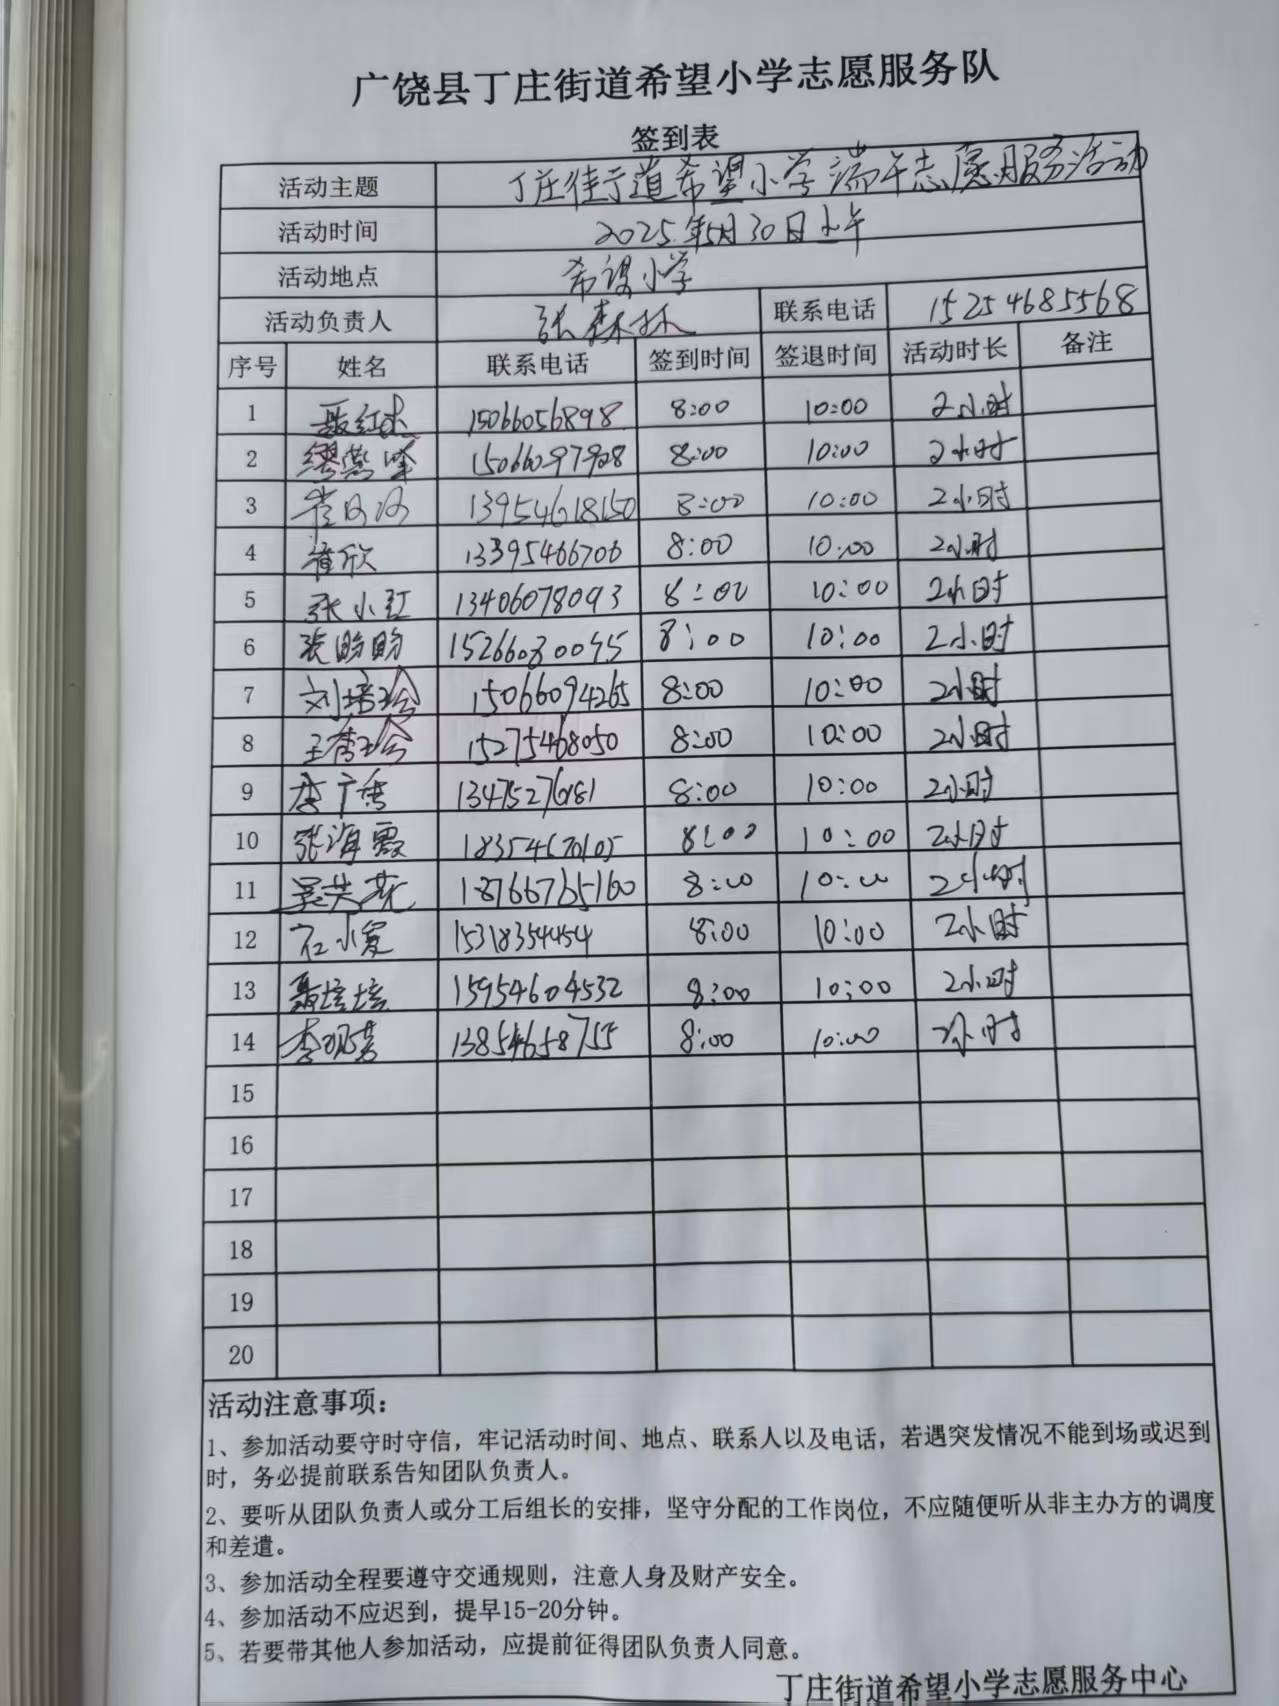 广饶县丁庄街道希望小学志愿服务队
签到表
活动主题 丁庄街道希望小学端午志愿服务活动
活动时间 2025年5月30日上午
活动地点 希望小学
活动负责人 张森林 联系电话 15254685568
序号 姓名 联系电话 签到时间 签退时间 活动时长 备注
1 15066056898 8:00 10:00 2小时
2 15066097928 8:00 10:00 2小时
3 13954618150 8:00 10:00 2小时
4 崔欣 13395466706 8:00 10:00 2小时
5 张小红 13406078093 8:00 10:00 2小时
6 张盼盼 8:00 10:00 2小时
7 刘培玲 15066094265 8:00 10:00 2小时
8 王春玲 15275468050 8:00 10:00 2小时
9 李广香 8:00 10:00 2小时
10 张海霞 18354670105 8:00 10:00 2小时
11 吴芙花 18766765160 8:00 10:00 2小时
12 石小爱 15318354454 8:00 10:00 2小时
13 聂培培 15954604532 8:00 10:00 2小时
14 李明芳 13854658755 8:00 10:00 2小时
15
16
17
18
19
20
活动注意事项：
1、参加活动要守时守信，牢记活动时间、地点、联系人以及电话，若遇突发情况不能到场或迟到
时，务必提前联系告知团队负责人。
2、要听从团队负责人或分工后组长的安排，坚守分配的工作岗位，不应随便听从非主办方的调度
和差遣。
3、参加活动全程要遵守交通规则，注意人身及财产安全。
4、参加活动不应迟到，提早15-20分钟。
5、若要带其他人参加活动，应提前征得团队负责人同意。
丁庄街道希望小学志愿服务中心